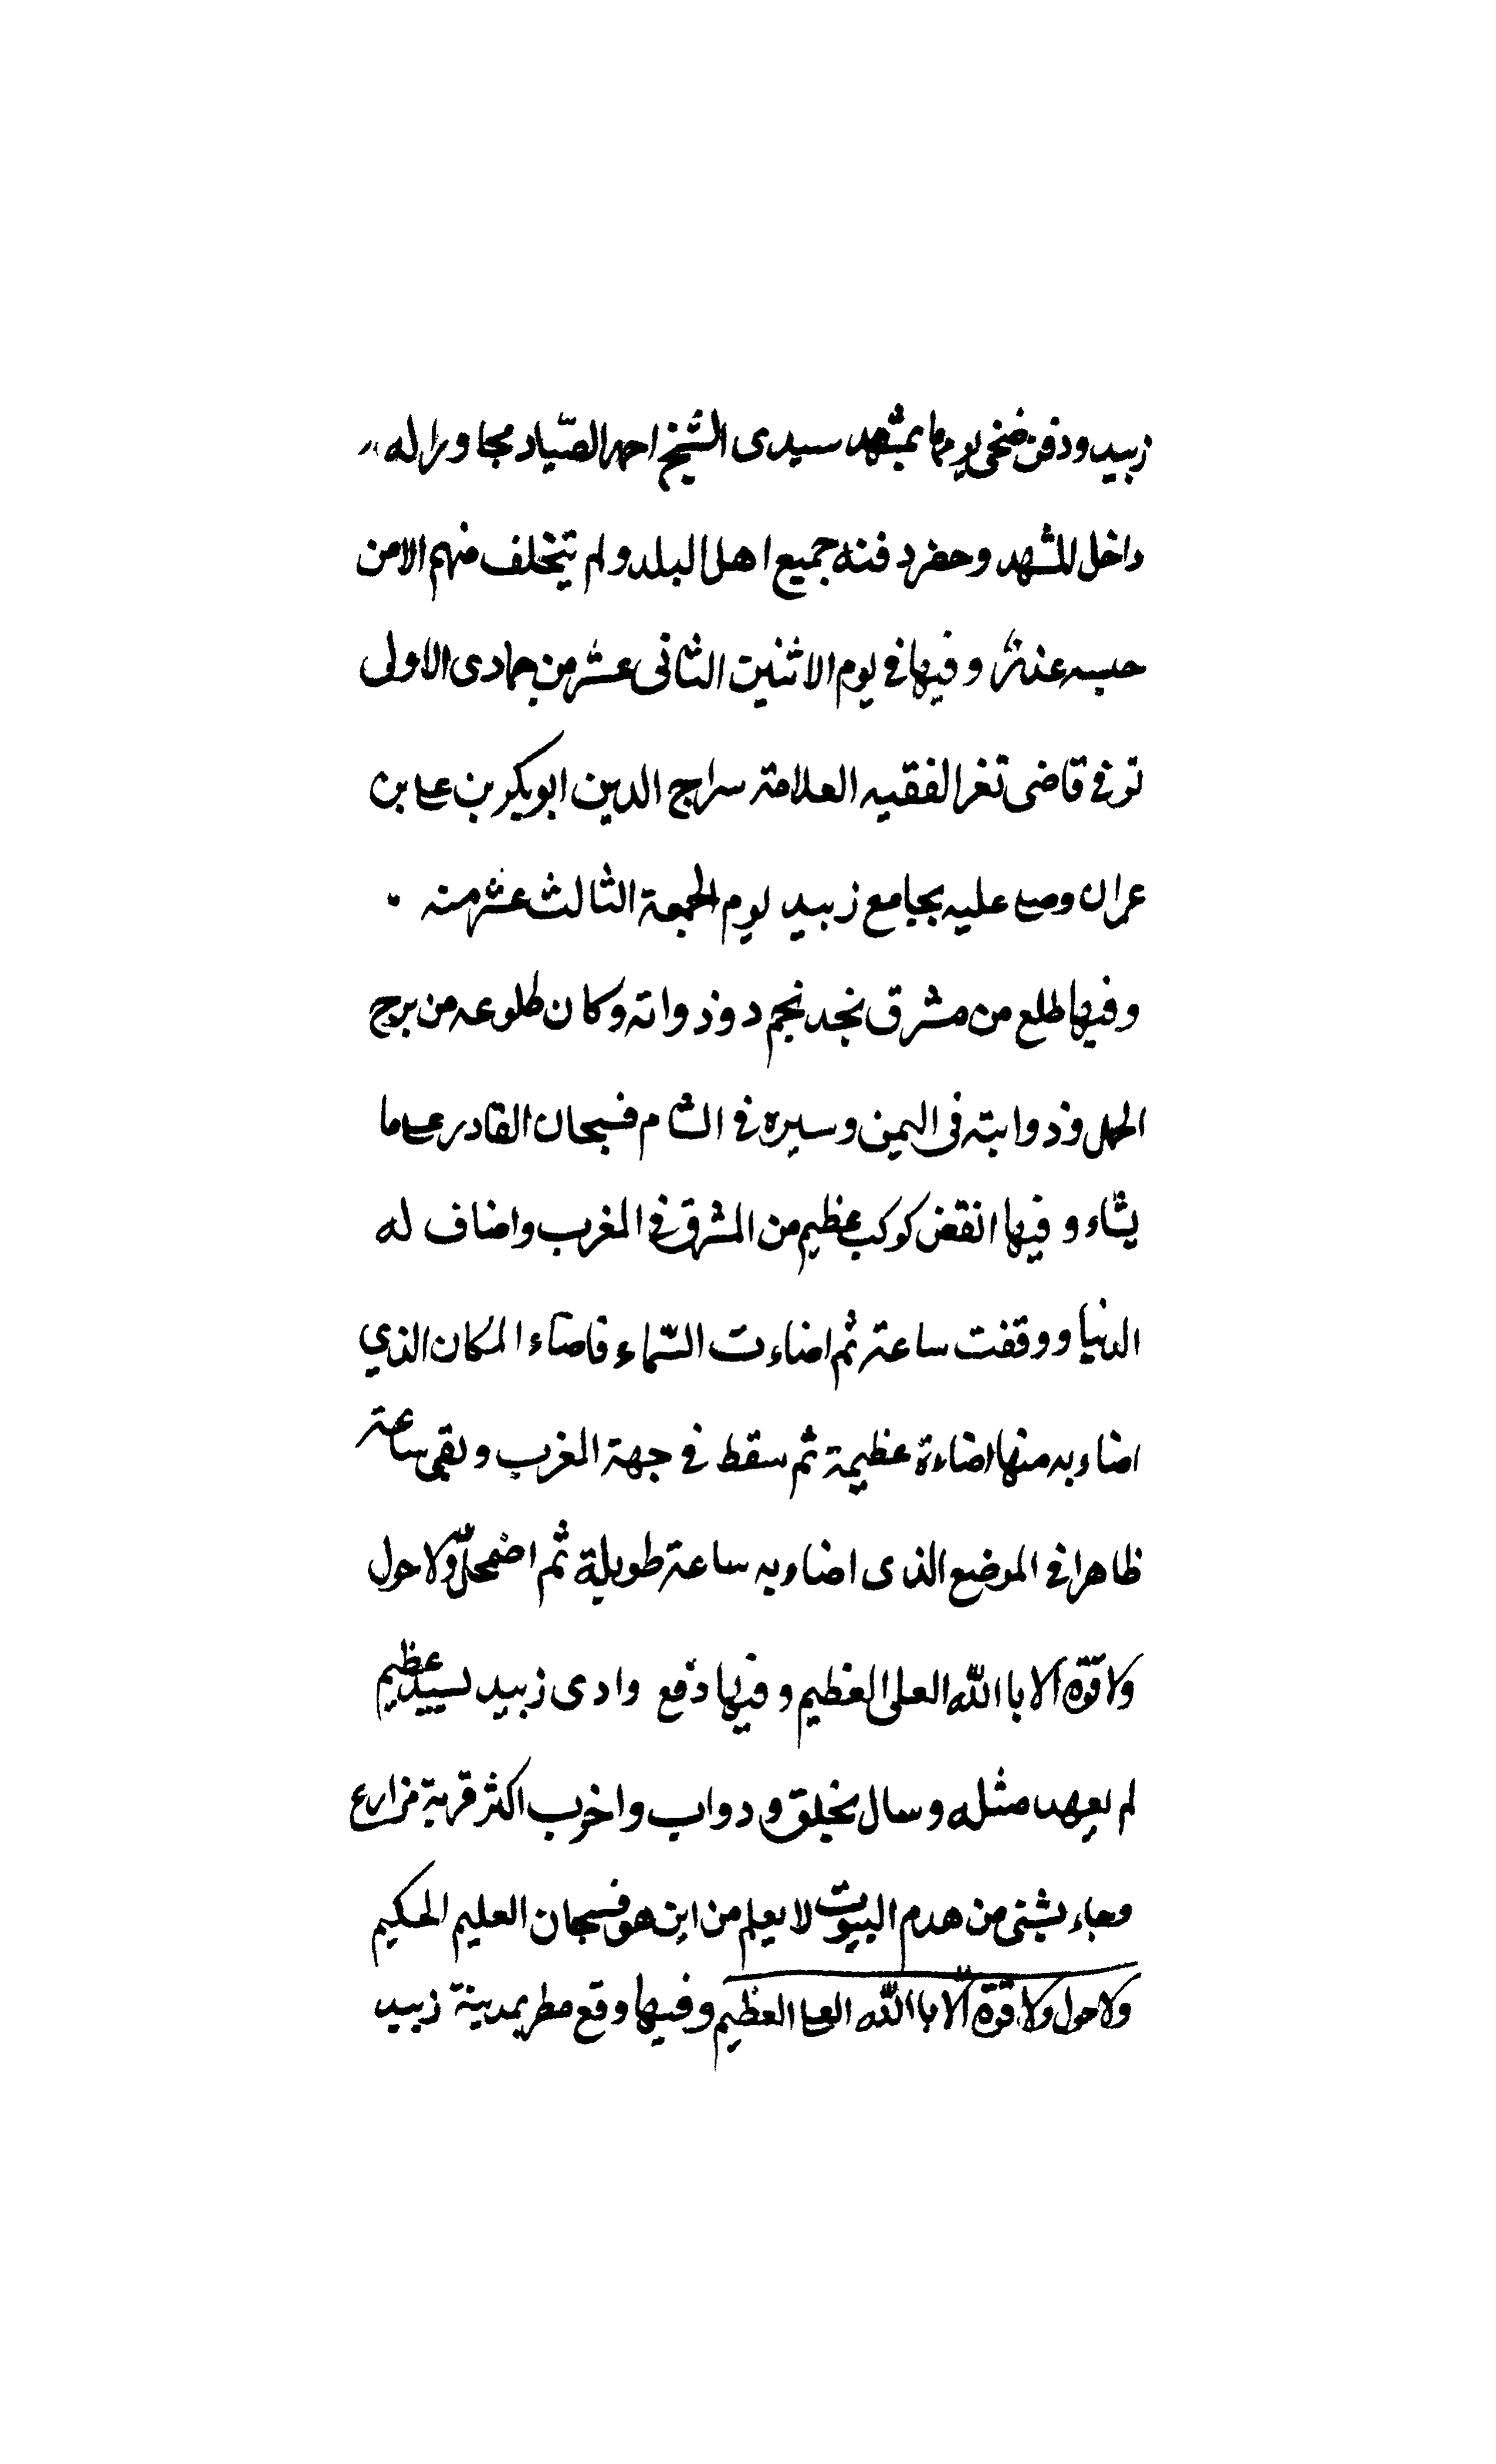 زبيد ودفن ضحى يومها بمشهد سيدى الشيخ احمد الصياد مجاورا له
داخل المشهد وحضر دفنه جميع اهل البلد ولم يتخلف منهم الا من
حبسه عذر وفيها في يوم الاثنين الثانى عشر من جمادى الاولى
توفي قاضى تعز الفقيه العلامة سراج الدين ابو بكر بن على بن
عمران وصلى عليه بجامع زبيد يوم الجمعة الثالث عشر منه
وفيها طلع من مشرق نجد نجم دو ذواته وكان طلوعه من برج
الحمل وذوابته فى اليمن وسيره في الشام فسبحان القادر على ما
يشاء وفيها انقض كوكب عظيم من المشرق في المغرب واضاف له
الدنيا ووقفت ساعة ثم اضاءت السماء فاضاء المكان الذي
اضاء به منها اضاءة عظيمة ثم سقط في جهة المغرب وبقى ساعة
ظاهرا في الموضع الذى اضاء به ساعة طويلة ثم اضمحل ولا حول
ولا قوة الا باالله العلى العظيم وفيها دفع وادى زبيد بسيل عظيم
لم يعهد مثله وسال بخلق ودواب واخرب اكثر قرية مزارع
وجاء بشئ من هدم البيوت لا يعلم من اين هو فسبحان العليم الحكيم
ولا حول ولا قوة الا باالله العلى العظيم وفيها وقع مطر بمدينة زبيد